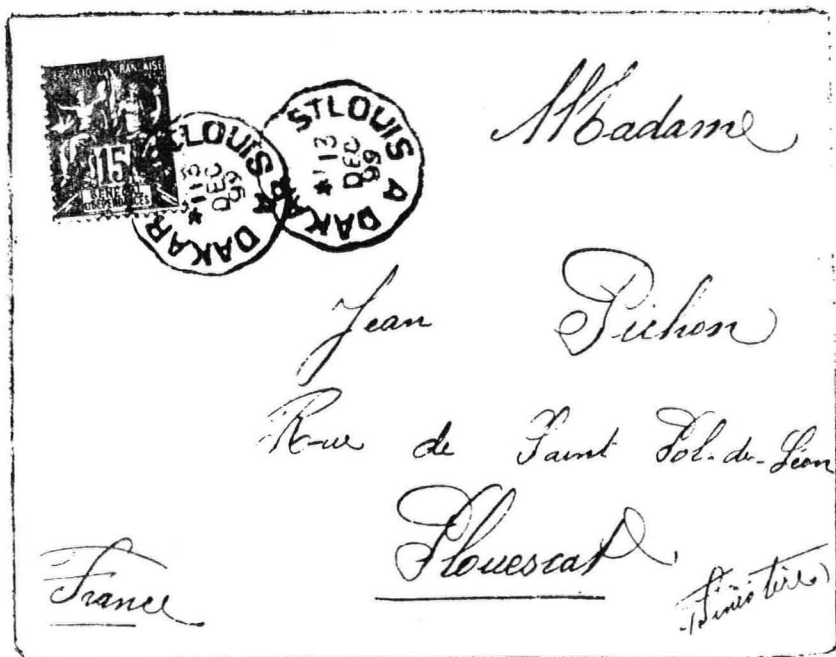 REPUBLIQUE FRANÇAISE
15
SENEGAL
ET DEPENDANCES
ST LOUIS A DAKAR
13
DEC
99
ST LOUIS A DAKAR
13
DEC
99
Madame
Jean Pichon
Rue de Saint Pol-de-Léon
Plouescat
France
(Finistère)